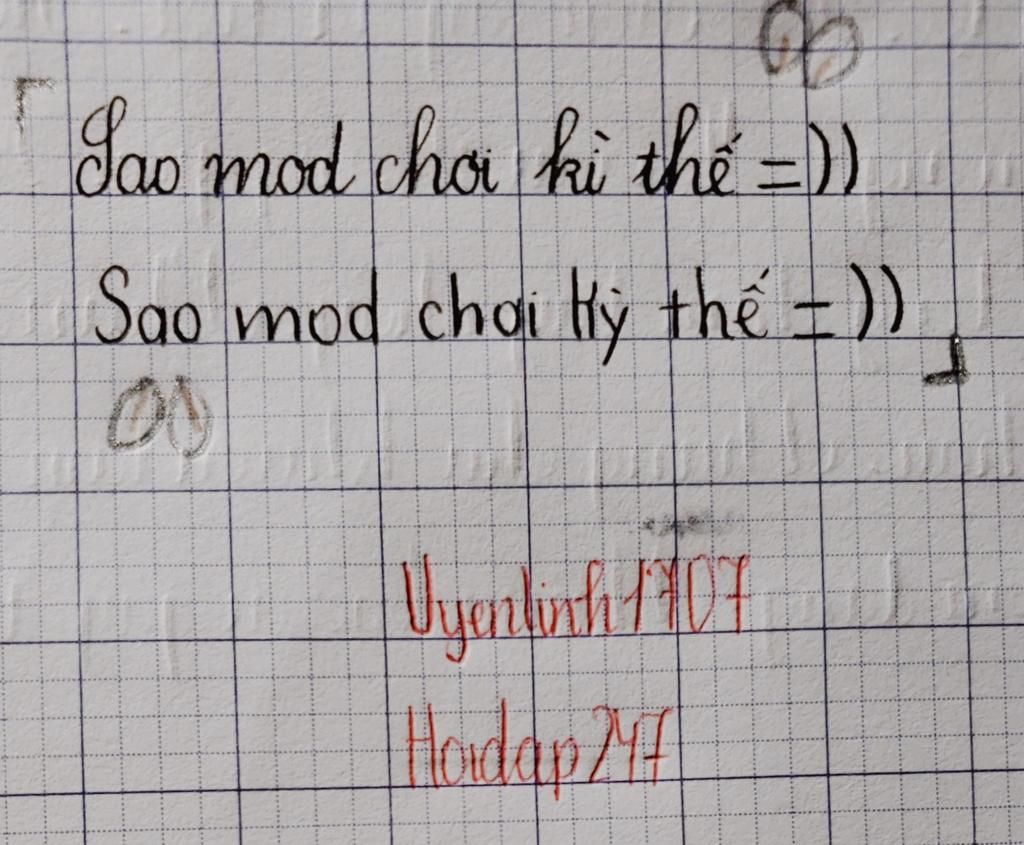 Sao mod chơi kì thế =))
Sao mod chơi kỳ thế =))
Uyenlinh1707
Hoidap247